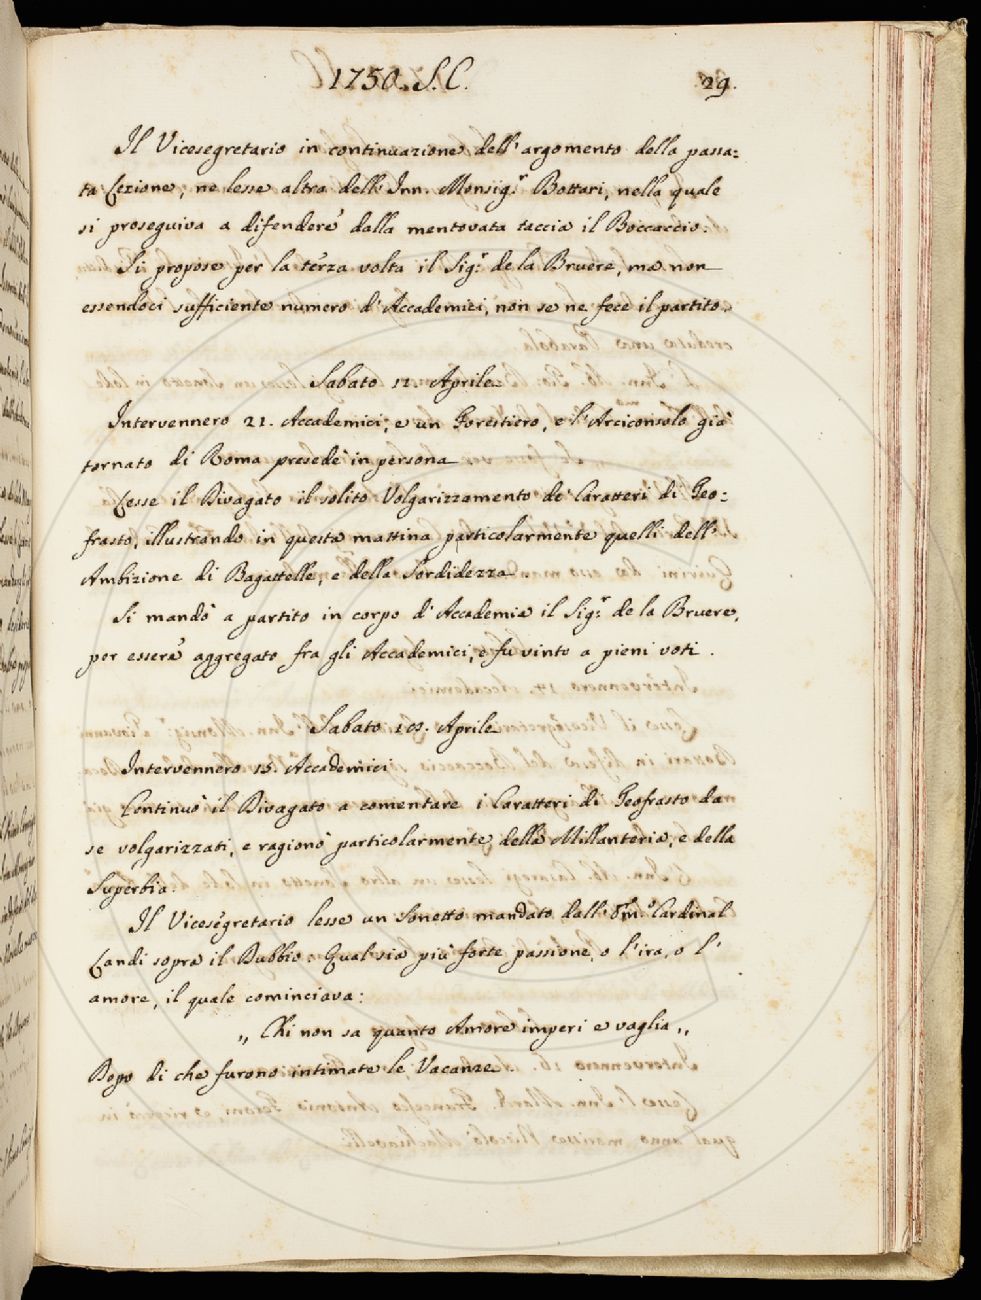 1750. S. C.
29.
Il Vicesegretario in continuazione dell' argomento della passa=
ta Lezione, ne lesse altra dell' Inn. Monsig.r Bottari, nella quale
si proseguiva a difendere dalla mentovata taccia il Boccaccio.
Si propose per la terza volta il Sig.r de la Bruere, ma non
essendoci sufficiente numero d' Accademici, non se ne fece il partito.
Sabato 12. Aprile
Intervennero 21. Accademici, e un Forestiero, e l' Arciconsolo già
tornato di Roma presedè in persona
Lesse il Divagato il solito Volgarizzamento de' Caratteri di Teo=
frasto, illustrando in questa mattina particolarmente quelli dell'
Ambizione di Bagattelle, e della Sordidezza
Si mandò a partito in corpo d' Accademia il Sig.r de la Bruere,
per essere aggregato fra gli Accademici, e fu vinto a pieni voti.
Sabato Aprile
Intervennero 15. Accademici
Continuò il Divagato a comentare i Caratteri di Teofrasto da
se volgarizzati, e ragionò particolarmente della Millanteria, e della
Superbia.
Il Vicesegretario lesse un Sonetto mandato dall' Em.o Cardinal
Landi sopra il Dubbio: Qual sia più forte passione, o l' ira, o l'
amore, il quale cominciava:
„ Chi non sa quanto Amore imperi e vaglia „
Dopo di che furono intimate le Vacanze